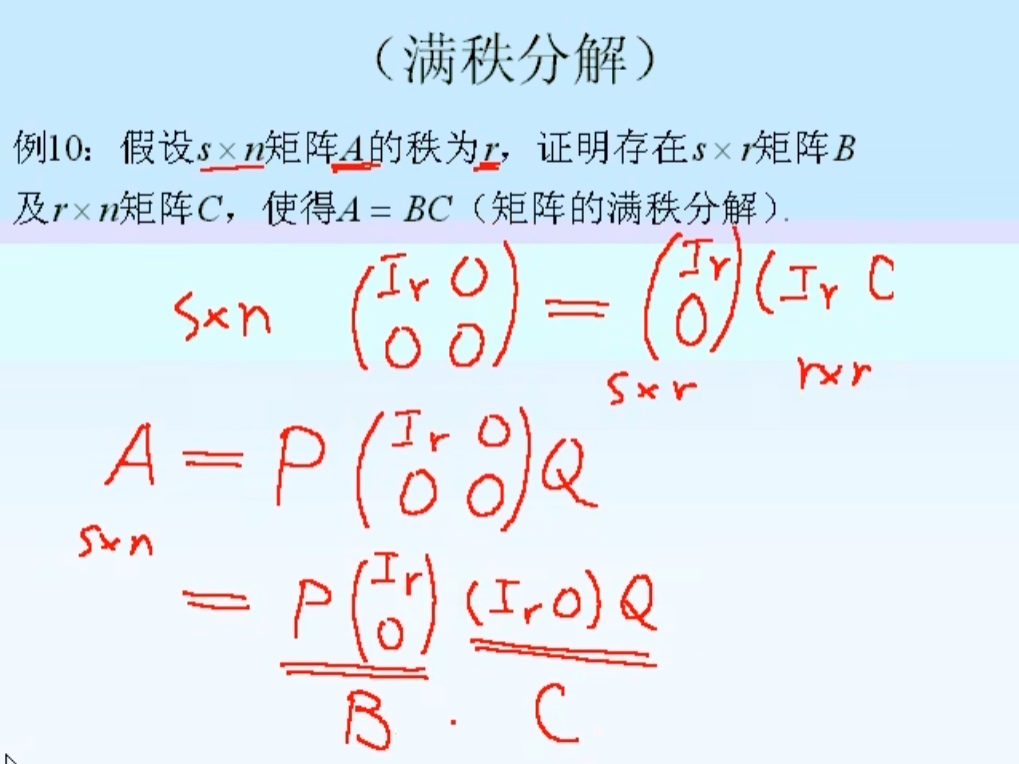 （满秩分解）
例10：假设s×n矩阵A的秩为r，证明存在s×r矩阵B
及r×n矩阵C，使得A = BC（矩阵的满秩分解）.
s×n (Ir 0 = (Ir (Ir C
0 0) 0)
s×r r×r
A = P (Ir 0
0 0) Q
s×n
= P (Ir (Ir 0) Q
0)
B · C